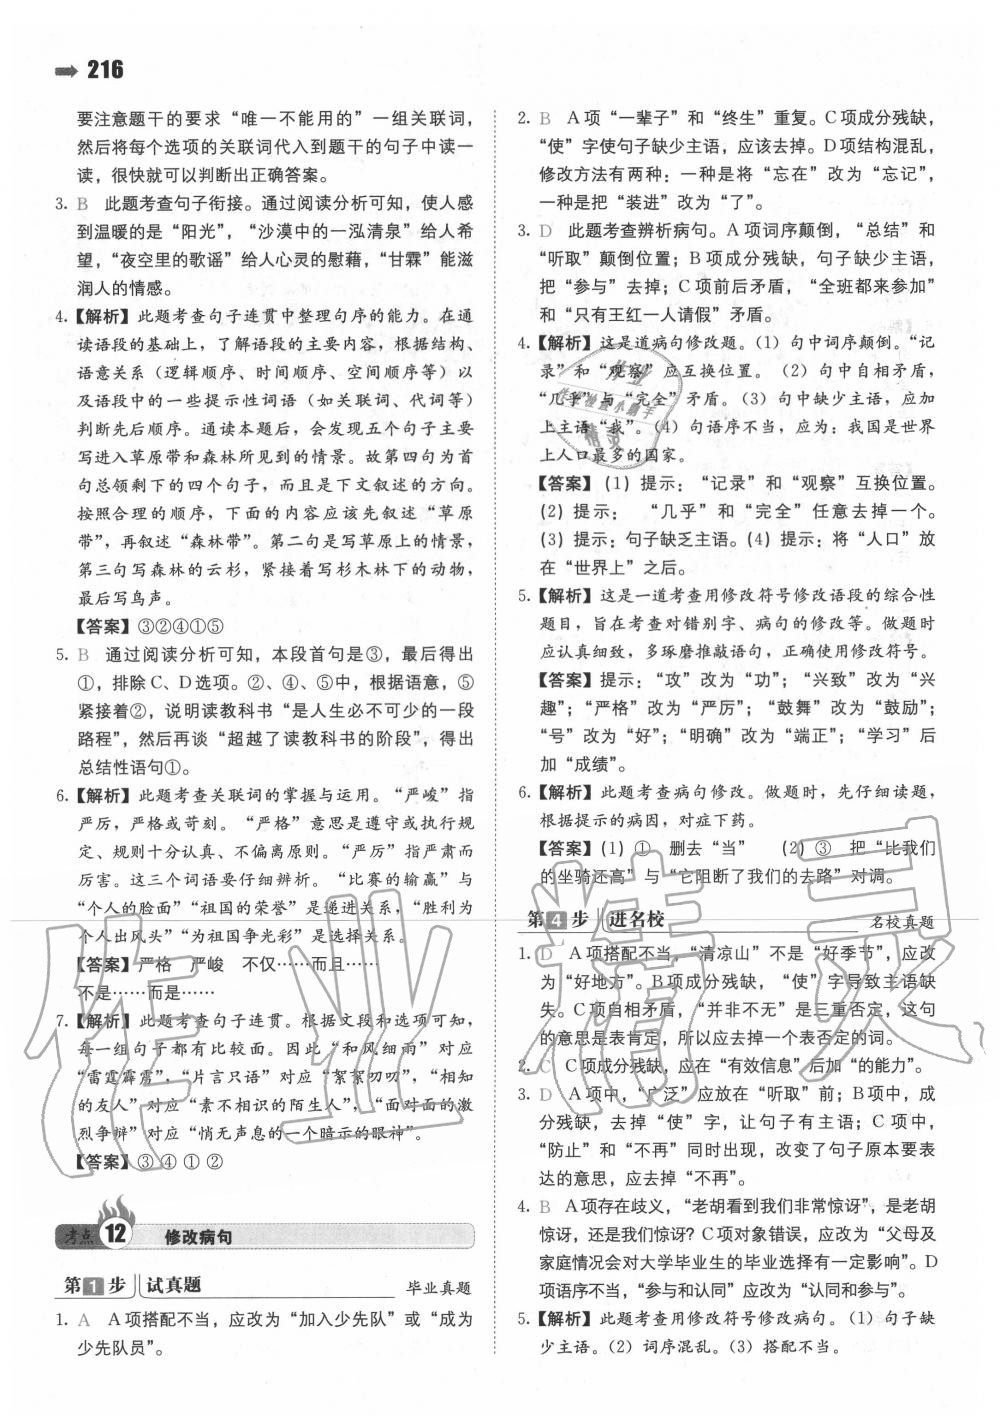 216
要注意题干的要求“唯一不能用的”一组关联词，
然后将每个选项的关联词代入到题干的句子中读一
读，很快就可以判断出正确答案。
3. B 此题考查句子衔接。通过阅读分析可知，使人感
到温暖的是“阳光”，“沙漠中的一泓清泉”给人希
望，“夜空里的歌谣”给人心灵的慰藉，“甘霖”能滋
润人的情感。
4.【解析】此题考查句子连贯中整理句序的能力。在通
读语段的基础上，了解语段的主要内容，根据结构、
语意关系（逻辑顺序、时间顺序、空间顺序等）以
及语段中的一些提示性词语（如关联词、代词等）
判断先后顺序。通读本题后，会发现五个句子主要
写进入草原带和森林所见到的情景。故第四句为首
句总领剩下的四个句子，而且是下文叙述的方向。
按照合理的顺序，下面的内容应该先叙述“草原
带”，再叙述“森林带”。第二句是写草原上的情景，
第三句写森林的云杉，紧接着写杉木林下的动物，
最后写鸟声。
【答案】③②④①⑤
5. B 通过阅读分析可知，本段首句是③，最后得出
①，排除C、D选项。②、④、⑤中，根据语意，⑤
紧接着②，说明读教科书“是人生必不可少的一段
路程”，然后再谈“超越了读教科书的阶段”，得出
总结性语句①。
6.【解析】此题考查关联词的掌握与运用。“严峻”指
严厉，严格或苛刻。“严格”意思是遵守或执行规
定、规则十分认真、不偏离原则。“严厉”指严肃而
厉害。这三个词语要仔细辨析。“比赛的输赢”与
“个人的脸面”“祖国的荣誉”是递进关系，“胜利为
个人出风头”“为祖国争光彩”是选择关系。
【答案】严格 严峻 不仅……而且……
不是……而是……
7.【解析】此题考查句子连贯。根据文段和选项可知，
每一组句子都有比较面。因此“和风细雨”对应
“雷霆霹雳”，“片言只语”对应“絮絮叨叨”，“相知
的友人”对应“素不相识的陌生人”，“面对面的激
烈争辩”对应“悄无声息的一个暗示的眼神”。
【答案】③④①②
考点 12 修改病句
第1步 试真题 毕业真题
1. A A项搭配不当，应改为“加入少先队”或“成为
少先队员”。
2. B A项“一辈子”和“终生”重复。C项成分残缺，
“使”字使句子缺少主语，应该去掉。D项结构混乱，
修改方法有两种：一种是将“忘在”改为“忘记”，
一种是把“装进”改为“了”。
3. D 此题考查辨析病句。A项词序颠倒，“总结”和
“听取”颠倒位置；B项成分残缺，句子缺少主语，
把“参与”去掉；C项前后矛盾，“全班都来参加”
和“只有王红一人请假”矛盾。
4.【解析】这是道病句修改题。（1）句中词序颠倒。“记
录”和“观察”应互换位置。（2）句中自相矛盾，
“几乎”与“完全”矛盾。（3）句中缺少主语，应加
上主语“我”。（4）句语序不当，应为：我国是世界
上人口最多的国家。
【答案】(1) 提示：“记录”和“观察”互换位置。
(2) 提示： “几乎”和“完全”任意去掉一个。
(3) 提示：句子缺乏主语。(4) 提示：将“人口”放
在“世界上”之后。
5.【解析】这是一道考查用修改符号修改语段的综合性
题目，旨在考查对错别字、病句的修改等。做题时
应认真细致，多琢磨推敲语句，正确使用修改符号。
【答案】提示：“攻”改为“功”；“兴致”改为“兴
趣”；“严格”改为“严厉”；“鼓舞”改为“鼓励”；
“号”改为“好”；“明确”改为“端正”；“学习”后
加“成绩”。
6.【解析】此题考查病句修改。做题时，先仔细读题，
根据提示的病因，对症下药。
【答案】(1) ① 删去“当” (2) ③ 把“比我们
的坐骑还高”与“它阻断了我们的去路”对调。
第4步 进名校 名校真题
1. D A项搭配不当，“清凉山”不是“好季节”，应改
为“好地方”。B项成分残缺，“使”字导致主语缺
失。C项自相矛盾，“并非不无”是三重否定，这句
的意思是表肯定，所以应去掉一个表否定的词。
2. C C项成分残缺，应在“有效信息”后加“的能力”。
3. D A项中，“广泛”应放在“听取”前；B项中，成
分残缺，去掉“使”字，让句子有主语；C项中，
“防止”和“不再”同时出现，改变了句子原本要表
达的意思，应去掉“不再”。
4. B A项存在歧义，“老胡看到我们非常惊讶”，是老胡
惊讶，还是我们惊讶？C项对象错误，应改为“父母及
家庭情况会对大学毕业生的毕业选择有一定影响”。D
项语序不当，“参与和认同”应改为“认同和参与”。
5.【解析】此题考查用修改符号修改病句。（1）句子缺
少主语。（2）词序混乱。（3）搭配不当。
作业精灵